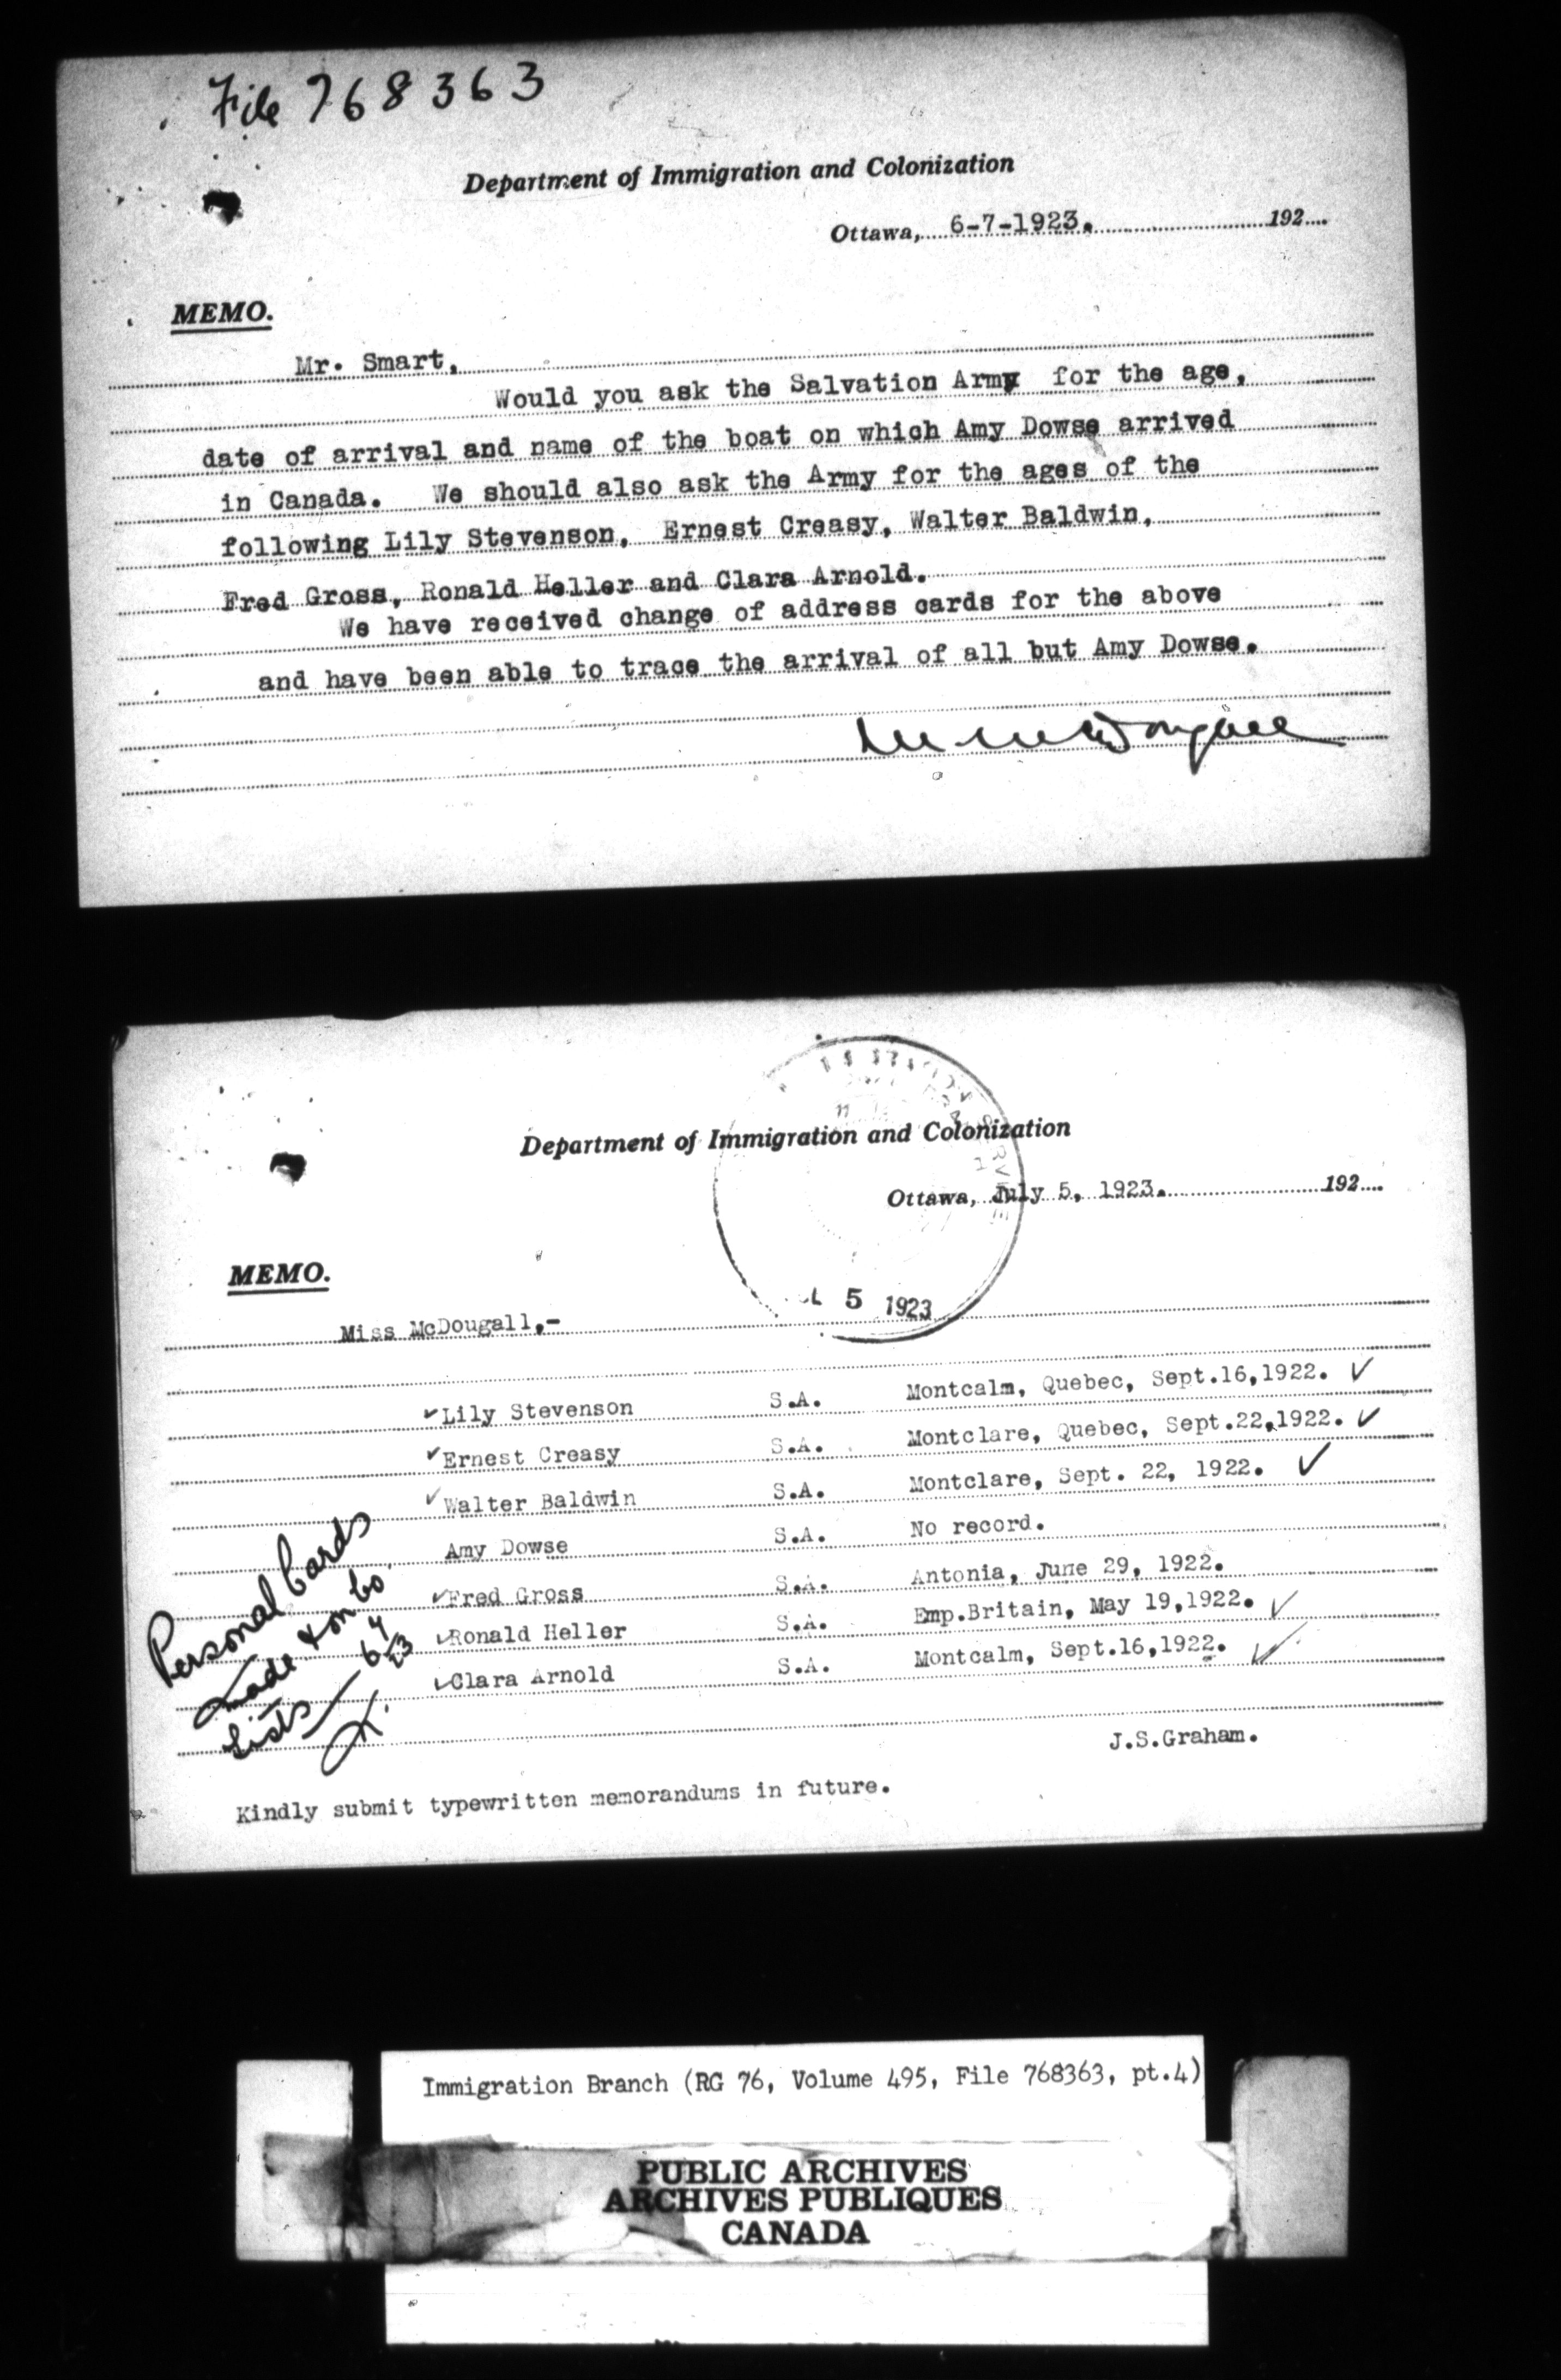 File 768363
Department of Immigration and Colonization
Ottawa, 6-7-1923. 192
MEMO.
Mr. Smart,
Would you ask the Salvation Army for the age,
date of arrival and name of the boat on which Amy Dowse arrived
in Canada. We should also ask the Army for the ages of the
following Lily Stevenson, Ernest Creasy, Walter Baldwin,
Fred Gross, Ronald Heller and Clara Arnold.
We have received change of address cards for the above
and have been able to trace the arrival of all but Amy Dowse.
McDougall
Department of Immigration and Colonization
Ottawa, July 5, 1923. 192
MEMO.
5 1923
Miss McDougall,-
✓Lily Stevenson S.A. Montcalm, Quebec, Sept.16,1922. ✓
✓Ernest Creasy S.A. Montclare, Quebec, Sept.22,1922. ✓
✓Walter Baldwin S.A. Montclare, Sept. 22, 1922. ✓
Amy Dowse S.A. No record.
✓Fred Gross S.A. Antonia, June 29, 1922.
✓Ronald Heller S.A. Emp.Britain, May 19,1922. ✓
✓Clara Arnold S.A. Montcalm, Sept.16,1922. ✓
Personal Cards
made & on Co
Lists
J.S.Graham.
Kindly submit typewritten memorandums in future.
Immigration Branch (RG 76, Volume 495, File 768363, pt.4)
PUBLIC ARCHIVES
ARCHIVES PUBLIQUES
CANADA